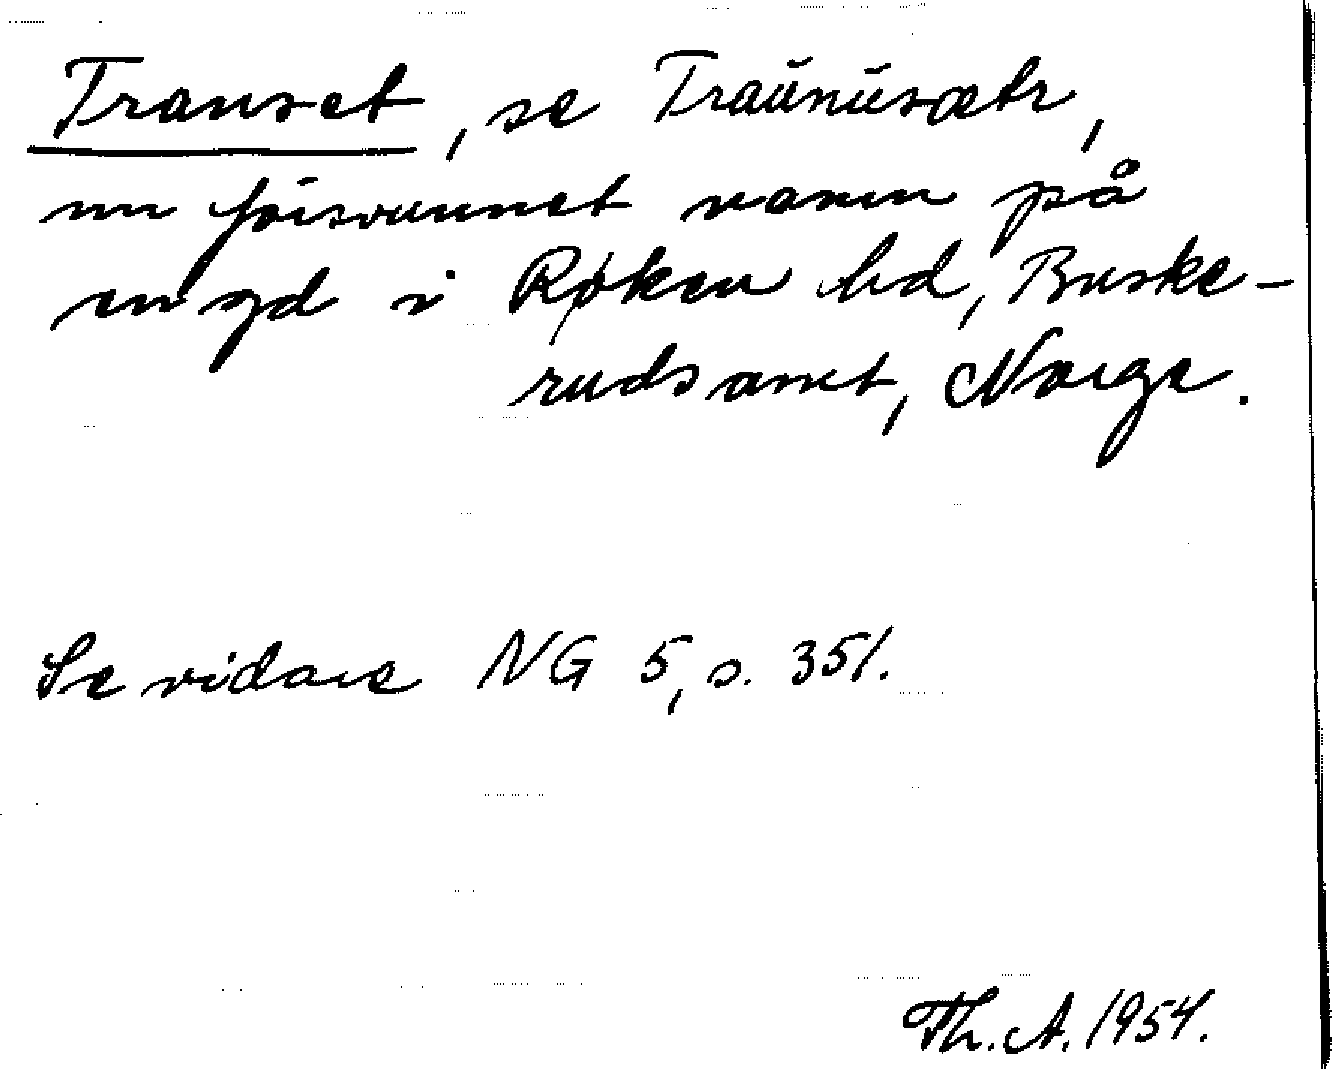 Transet, se Traŭnŭsætr,
nu försvunnet namn på
en gd i Røken hd, Buske-
rudsamt, Norge.
Se vidare NG 5, s. 351.
Th. A. 1954.